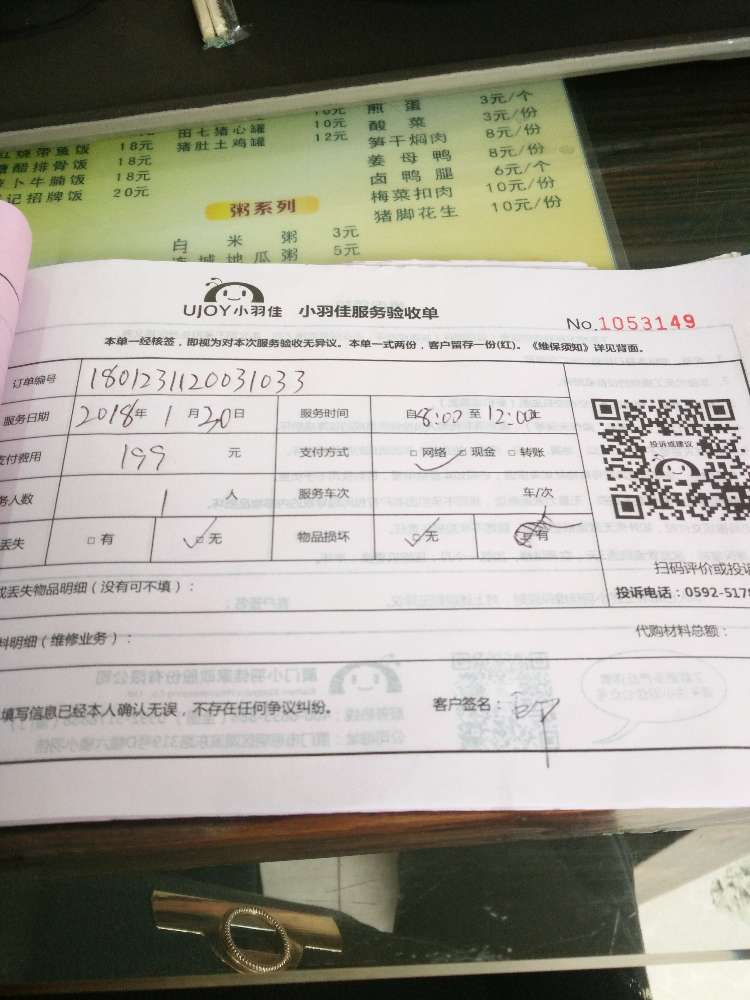 田七猪心罐 10元
猪肚土鸡罐 12元
煎蛋 3元/个
酸菜 3元/份
笋干焖肉 8元/份
姜母鸭 8元/份
卤鸭腿 6元/个
梅菜扣肉 10元/份
猪脚花生 10元/份
烧带鱼饭 18元
醋排骨饭 18元
卜牛腩饭 18元
记招牌饭 20元
粥系列
白米粥 3元
连城地瓜粥 5元
UJOY小羽佳 小羽佳服务验收单
No.1053149
本单一经核签，即视为对本次服务验收无异议。本单一式两份，客户留存一份(红)。《维保须知》详见背面。
订单编号 1801231120031033
服务日期 2018年1月20日 服务时间 自8:00至12:00止
支付费用 199元 支付方式 □网络 □现金 □转账
务人数 1人 服务车次 车/次
丢失 □有 □无 物品损坏 □无 □有
投诉或建议
扫码评价或投诉
投诉电话：0592-5178
或丢失物品明细（没有可不填）：
料明细（维修业务）： 代购材料总额：
填写信息已经本人确认无误，不存在任何争议纠纷。 客户签名：